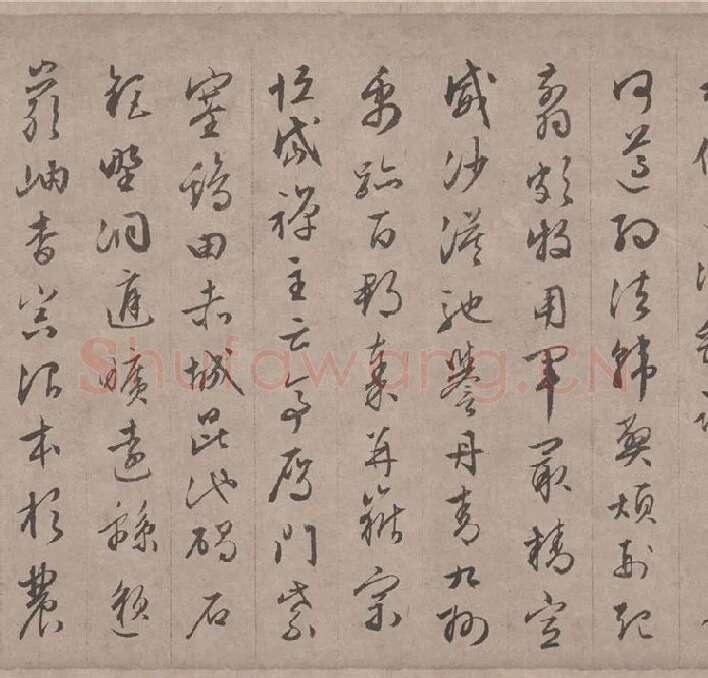 何遵約法韓弊煩刑起
翦頗牧用軍最精宣
威沙漠馳譽丹青九州
禹跡百郡秦并嶽宗
恒岱禪主云亭雁門紫
塞雞田赤城昆池碣石
鉅野洞庭曠遠綿邈
巖岫杳冥治本於農
Shufawang.CN